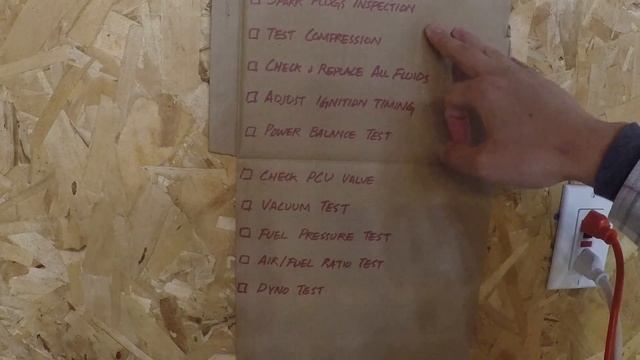 SPARK PLUGS INSPECTION
TEST COMPRESSION
CHECK & REPLACE ALL FLUIDS
ADJUST IGNITION TIMING
POWER BALANCE TEST
CHECK PCU VALUE
VACUUM TEST
FUEL PRESSURE TEST
AIR/FUEL RATIO TEST
DYNO TEST